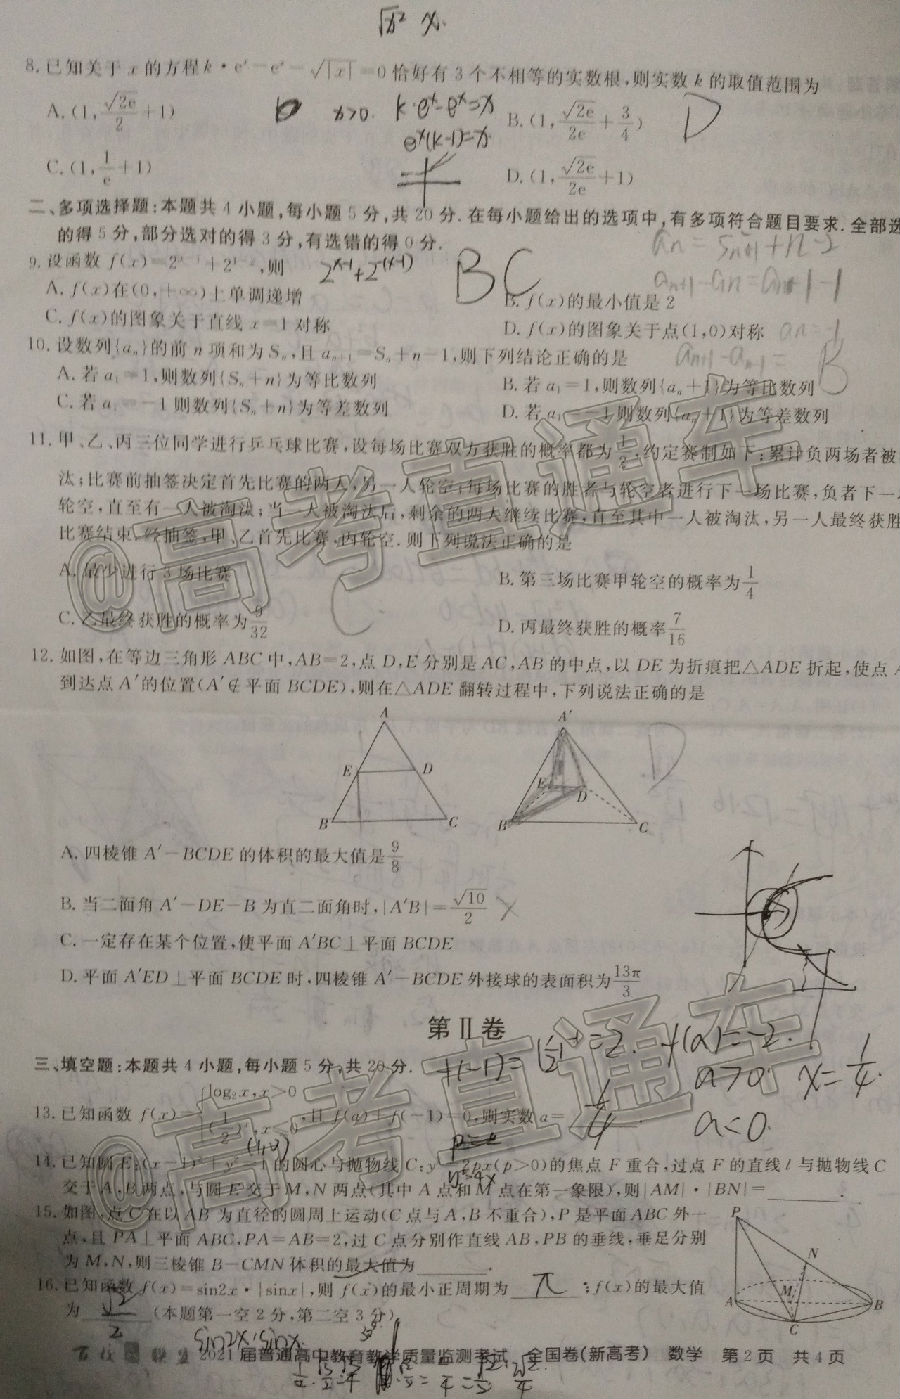 √x² x.
8.已知关于x的方程k·eˣ-eˣ-√|x|=0恰好有3个不相等的实数根,则实数k的取值范围为
A.(1,√2e/2+1) x>0. k·eˣ-eˣ=x B.(1,√2e/2e+3/4) D
eˣ(k-1)=x
C.(1,1/e+1) D.(1,√2e/2e+1)
二、多项选择题:本题共4小题,每小题5分,共20分.在每小题给出的选项中,有多项符合题目要求.全部选
的得5分,部分选对的得3分,有选错的得0分.
9.设函数f(x)= ,则 BC
A.f(x)在(0,+∞)上单调递增 B.f(x)的最小值是2
C.f(x)的图象关于直线x=1对称 D.f(x)的图象关于点(1,0)对称
10.设数列{aₙ}的前n项和为Sₙ,且aₙ₊₁=Sₙ+n-1,则下列结论正确的是 B
A.若a₁=1,则数列{Sₙ+n}为等比数列 B.若a₁=1,则数列{aₙ+1}为等比数列
C.若a₁=-1则数列{Sₙ+n}为等差数列 D.若a₁=-1则数列{aₙ+1}为等差数列
11.甲、乙、丙三位同学进行乒乓球比赛,设每场比赛双方获胜的概率都为1/2,约定赛制如下:累计负两场者被
汰;比赛前抽签决定首先比赛的两人,另一人轮空;每场比赛的胜者与轮空者进行下一场比赛,负者下一
轮空,直至有一人被淘汰;当一人被淘汰后,剩余的两人继续比赛,直至其中一人被淘汰,另一人最终获胜
比赛结束.经抽签,甲、乙首先比赛,丙轮空.则下列说法正确的是
A.最少进行3场比赛 B.第三场比赛甲轮空的概率为1/4
C.乙最终获胜的概率为9/32 D.丙最终获胜的概率7/16
12.如图,在等边三角形ABC中,AB=2,点D,E分别是AC,AB的中点,以DE为折痕把△ADE折起,使点A
到达点A′的位置(A′∉平面BCDE),则在△ADE翻转过程中,下列说法正确的是
A A′
E D E D D
B C B C
A.四棱锥A′-BCDE的体积的最大值是9/8
B.当二面角A′-DE-B为直二面角时,|A′B|=√10/2
C.一定存在某个位置,使平面A′BC⊥平面BCDE
D.平面A′ED⊥平面BCDE时,四棱锥A′-BCDE外接球的表面积为13π/3
第Ⅱ卷
三、填空题:本题共4小题,每小题5分,共20分. f(-1)=(1/2)⁻¹=2. f(a)=-2.
13.已知函数f(x)= log₂x,x>0 ,且f(a)+f(-1)=0,则实数a= 1/4 a>0 x=1/4.
a≤0.
14.已知圆E: 的圆心与抛物线C:y²=2px(p>0)的焦点F重合,过点F的直线l与抛物线C
交于A,B两点,与圆E交于M,N两点(其中A点和M点在第一象限),则|AM|·|BN|=________.
15.如图,点C在以AB为直径的圆周上运动(C点与A,B不重合),P是平面ABC外一
点,且PA⊥平面ABC,PA=AB=2,过C点分别作直线AB,PB的垂线,垂足分别
为M,N,则三棱锥B-CMN体积的最大值为________.
P
N
A M B
C
16.已知函数f(x)=sin2x·|sinx|,则f(x)的最小正周期为 π ;f(x)的最大值
为 √2/2 (本题第一空2分,第二空3分)
sin2x·sinx.
2021届普通高中教育教学质量监测考试 全国卷(新高考) 数学 第2页 共4页
@高考直通车
@高考直通车